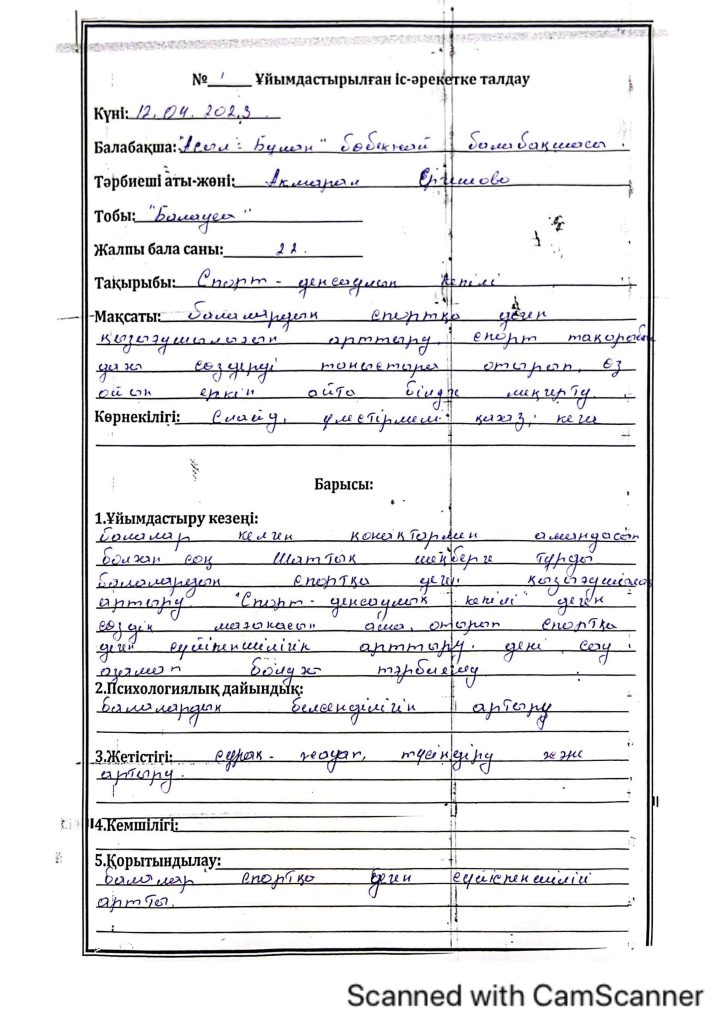 № 1 Ұйымдастырылған іс-әрекетке талдау
Күні: 12.04.2023
Балабақша: "Асыл-Бұлан" бөбекжай балабақшасы
Тәрбиеші аты-жөні: Акмарал
Тобы: "Балауса"
Жалпы бала саны: 22.
Тақырыбы: Спорт - денсаулық кепілі
Мақсаты: балалардың спортқа деген
қызығушылығын арттыру, спорт
сөздерді таныстыра отырып, өз
ойын еркін айта білуді меңгерту.
Көрнекілігі: Слайд, үлестірмелі қағаз,
Барысы:
1.Ұйымдастыру кезеңі:
балалар келген қонақтармен амандасып
болған соң Шаттық шеңберге тұрды
балалардың спортқа деген
артыру. "Спорт - денсаулық кепілі" деген
сөздің мағынасын аша отырып спортқа
деген сүйіспеншілігін арттыру. дені сау
азамат болуға тәрбиелеу
2.Психологиялық дайындық:
балалардың белсенділігін артыру
3.Жетістігі: сұрақ - жауап, түсіндіру
артыру.
4.Кемшілігі:
5.Қорытындылау:
балалар спортқа деген сүйіспеншілігі
артты.
Scanned with CamScanner